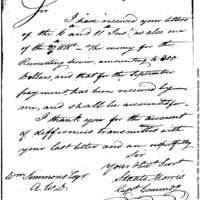 Sir
I have received your letters
of the 6 and 11 Inst. as also one
of the 29 Ulto. The money for the
Recruiting Service, amounting to 300
Dollars, and that for the September
payment, has been received by
me, and shall be accounted for.
I thank you for the account
of differences transmitted with
your last letter and am respectfully
Sir
Your Obet Servt
Staats Morris
Capt Commdg
Wm Simmons Esqr
A.W.D.